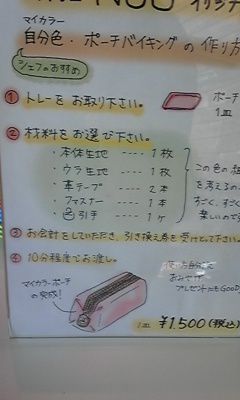 NOU オリジナ
マイカラー
自分色・ポーチバイキングの作り方
シェフのおすすめ
① トレーをお取り下さい。
ポーチ
1皿
② 材料をお選び下さい。
・本体生地 ---- 1枚
・ウラ生地 ---- 1枚
・革テープ ---- 2本
・ファスナー ---- 1本
・引手 ---- 1ヶ
この色の組
を考えるの
すごく、すご
楽しいので
③ お会計をしていただき、引き換え券を受けとって下さい。
④ 10分程度でお渡し。
マイカラーポーチ
の完成!
おみやげ
プレゼントにもGOOD
1皿 ¥1,500(税込)